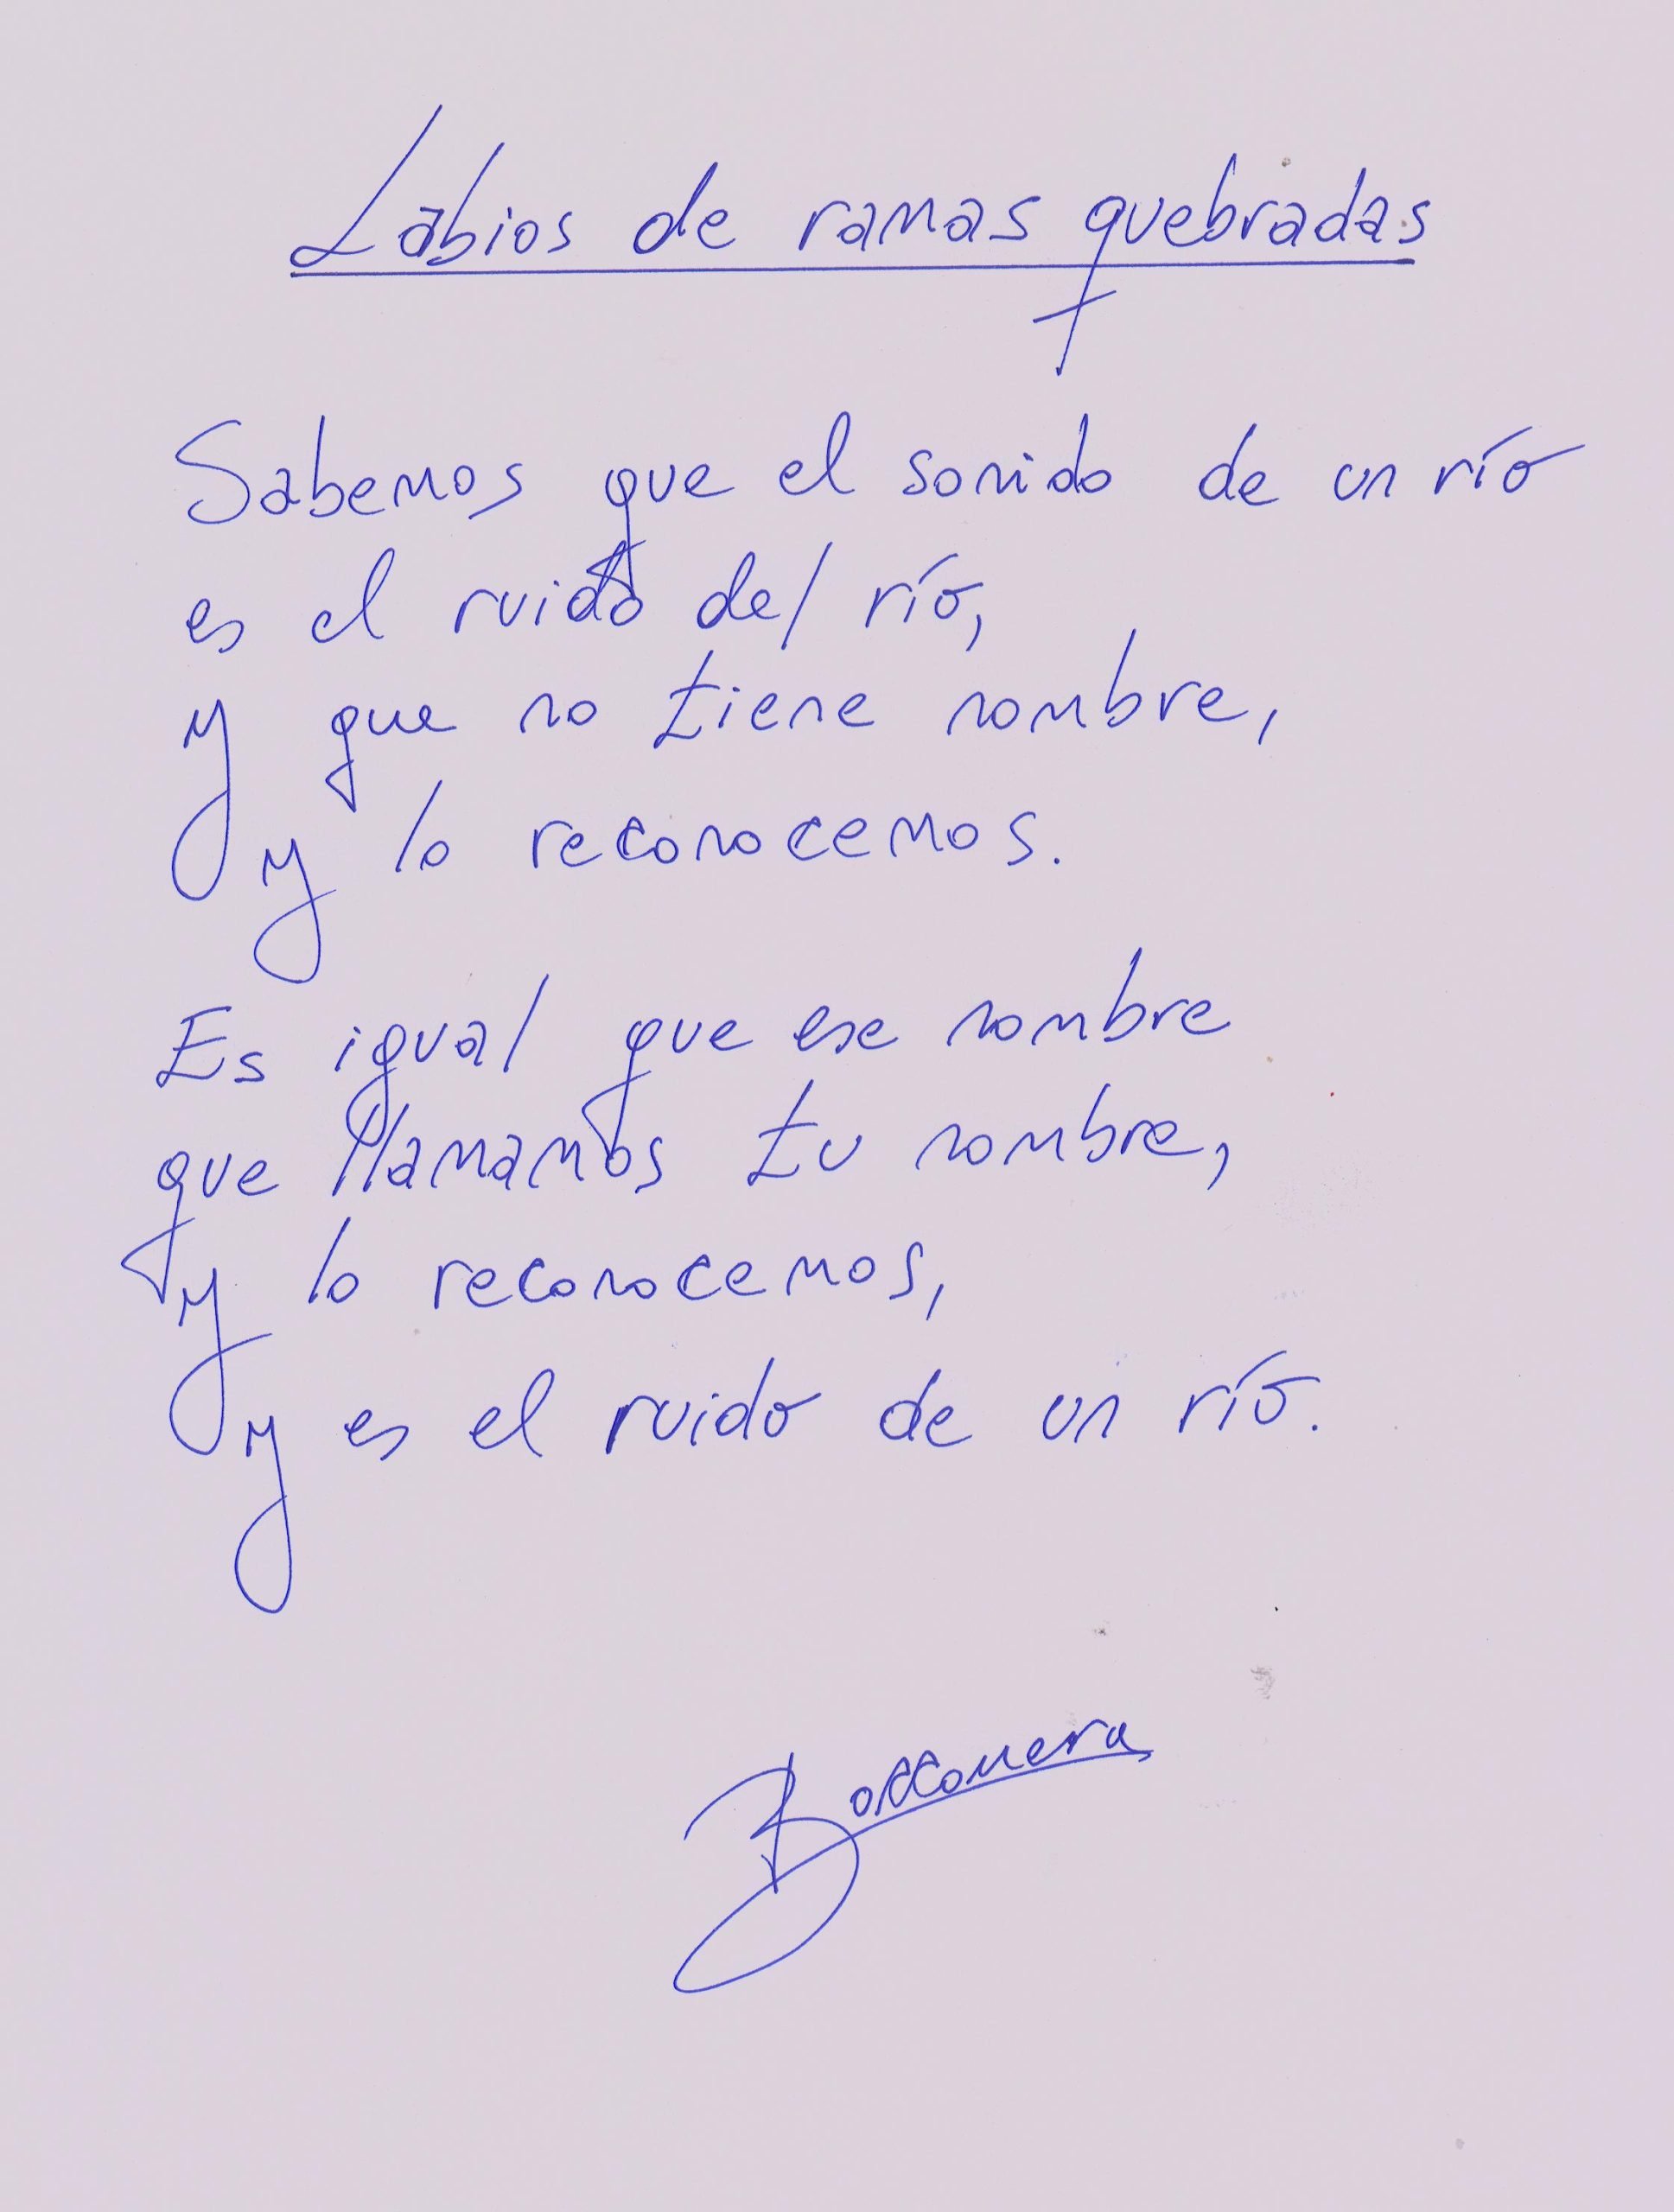 Labios de ramas quebradas
Sabemos que el sonido de un río
es el ruido del río,
y que no tiene nombre,
y lo reconocemos.
Es igual que ese nombre
que llamamos tu nombre,
y lo reconocemos,
y es el ruido de un río.